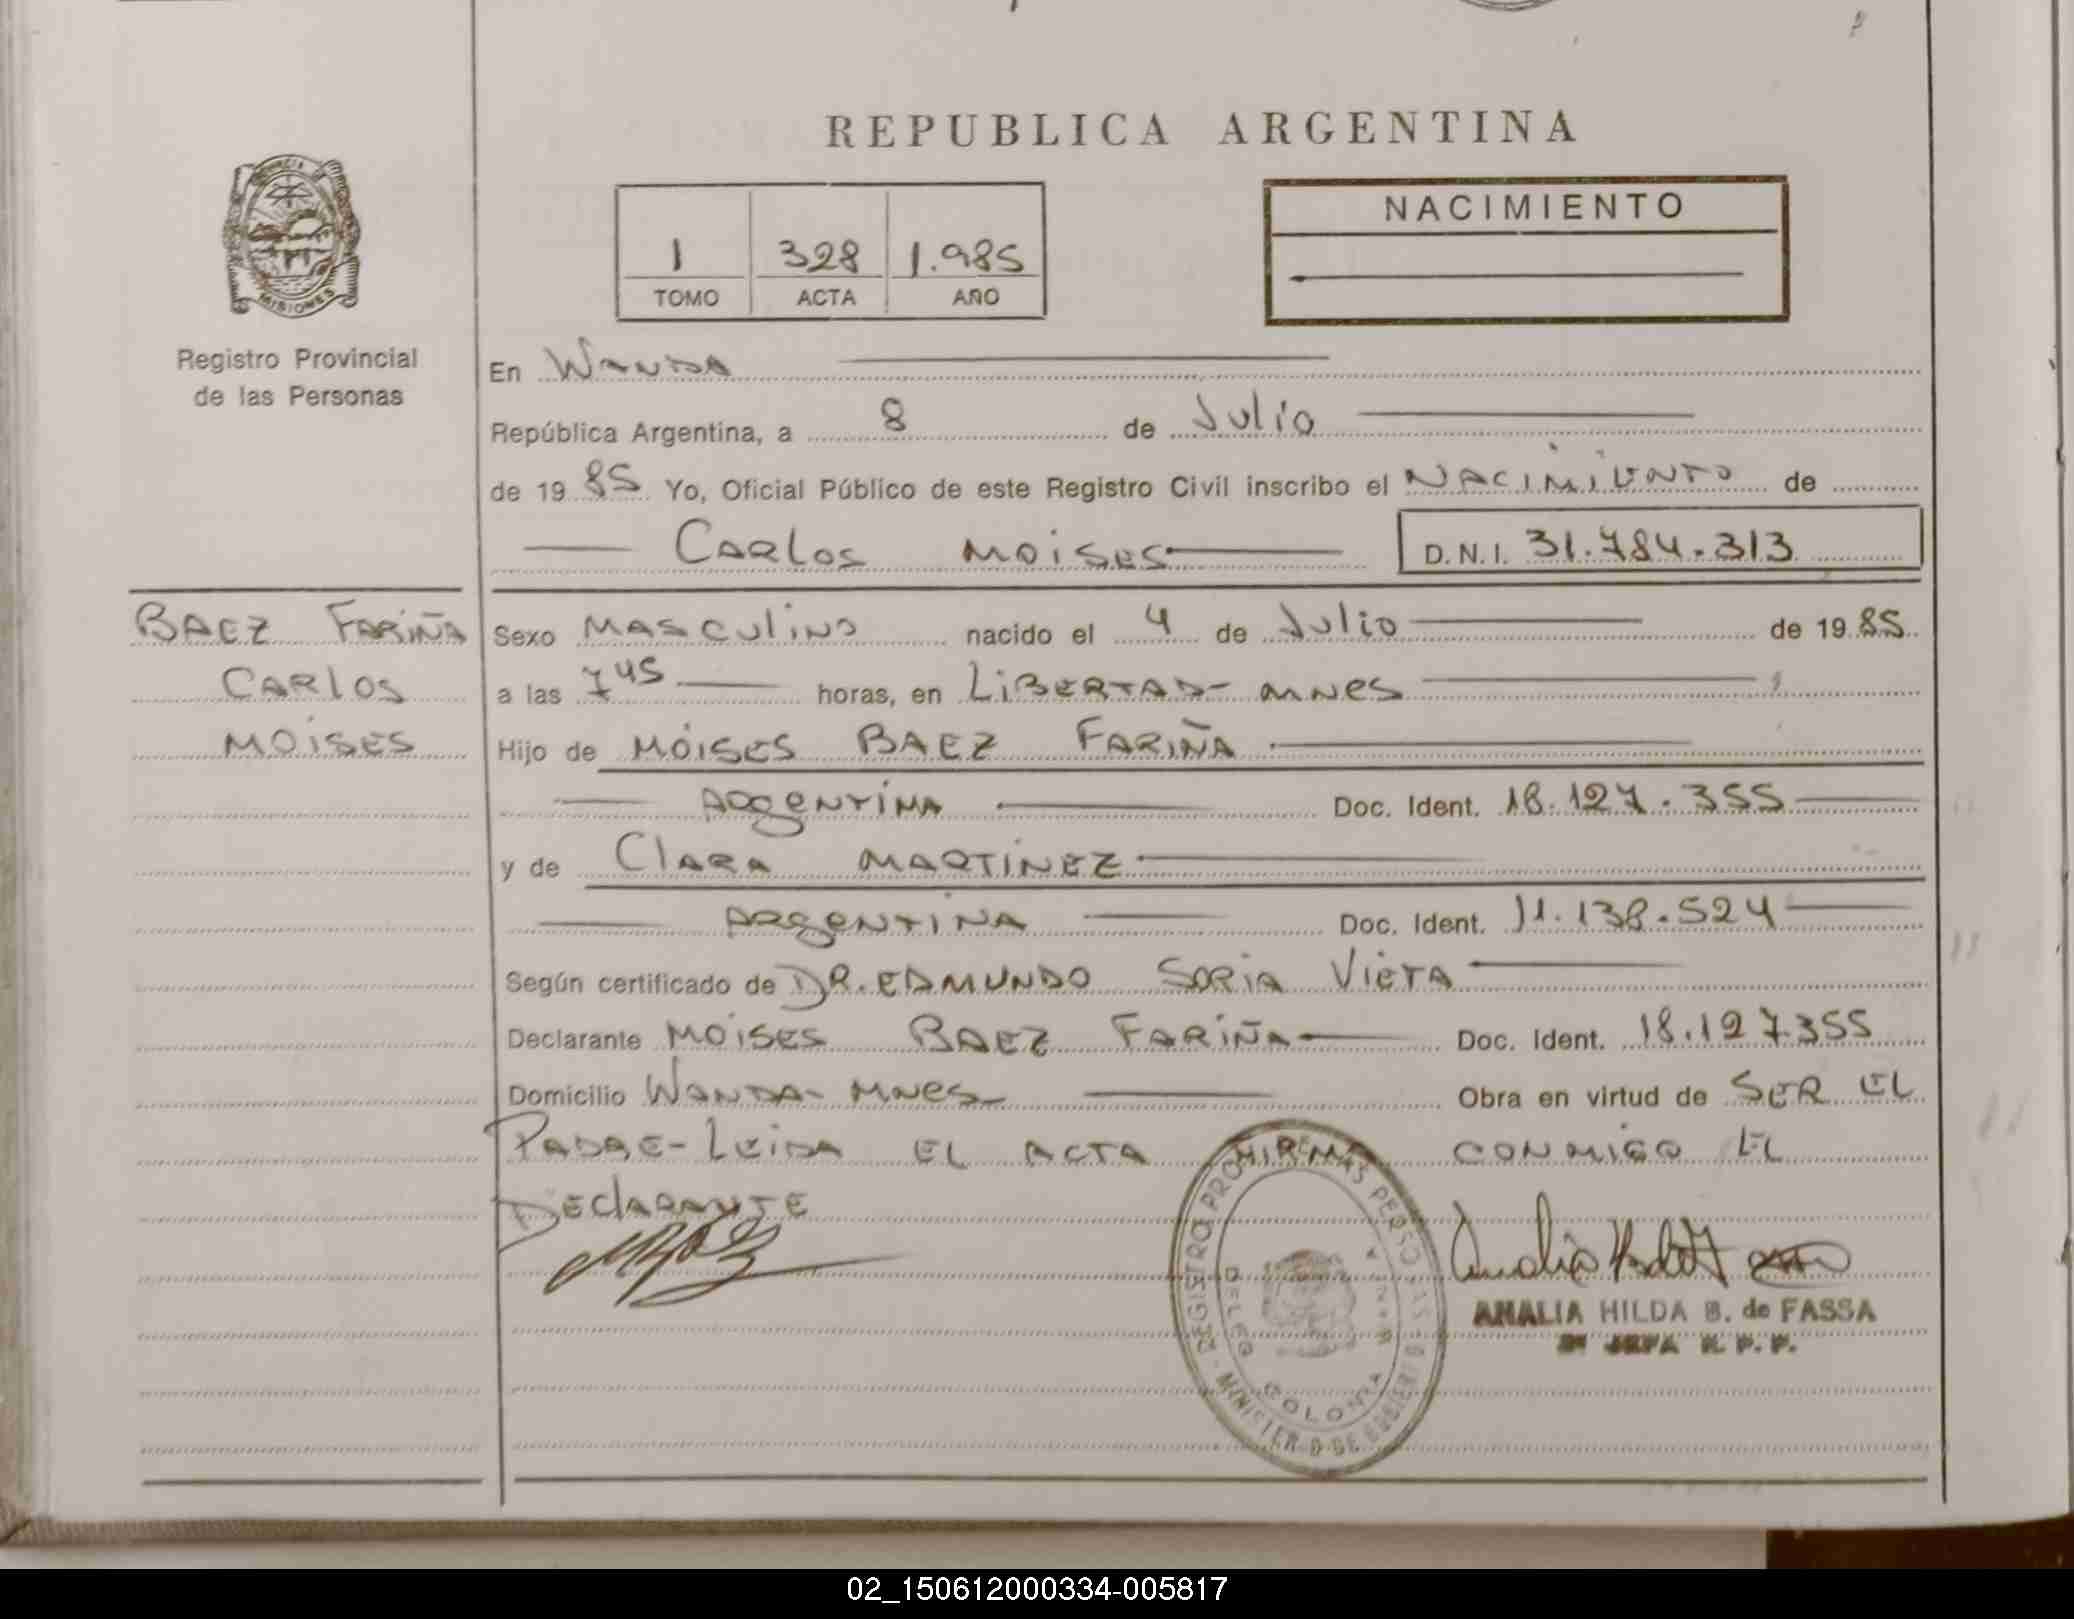 REPUBLICA ARGENTINA
PROVINCIA
MISIONES
Registro Provincial
de las Personas
1 328 1.985
TOMO ACTA AÑO
NACIMIENTO
En WANDA
República Argentina, a 8 de Julio
de 19 85 Yo, Oficial Público de este Registro Civil inscribo el NACIMIENTO de
CARLOS MOISES D.N.I. 31.784.313
BAEZ FARIÑA
CARLOS
MOISES
Sexo MASCULINO nacido el 4 de Julio de 19 85
a las 7 45 horas, en LIBERTAD - MNES
Hijo de MOISES BAEZ FARIÑA
ARGENTINA Doc. Ident. 18.127.355
y de CLARA MARTINEZ
ARGENTINA Doc. Ident. 11.138.524
Según certificado de DR. EDMUNDO SORIA VIETA
Declarante MOISES BAEZ FARIÑA Doc. Ident. 18.127.355
Domicilio WANDA - MNES Obra en virtud de SER EL
PADRE - LEIDA EL ACTA FIRMA CONMIGO EL
DECLARANTE
REGISTRO PROV. DE LAS PERSONAS - MINISTERIO DE GOBIERNO
DELEG COLONIA WANDA
ANALIA HILDA B. de FASSA
JEFA R. P. P.
02_150612000334-005817